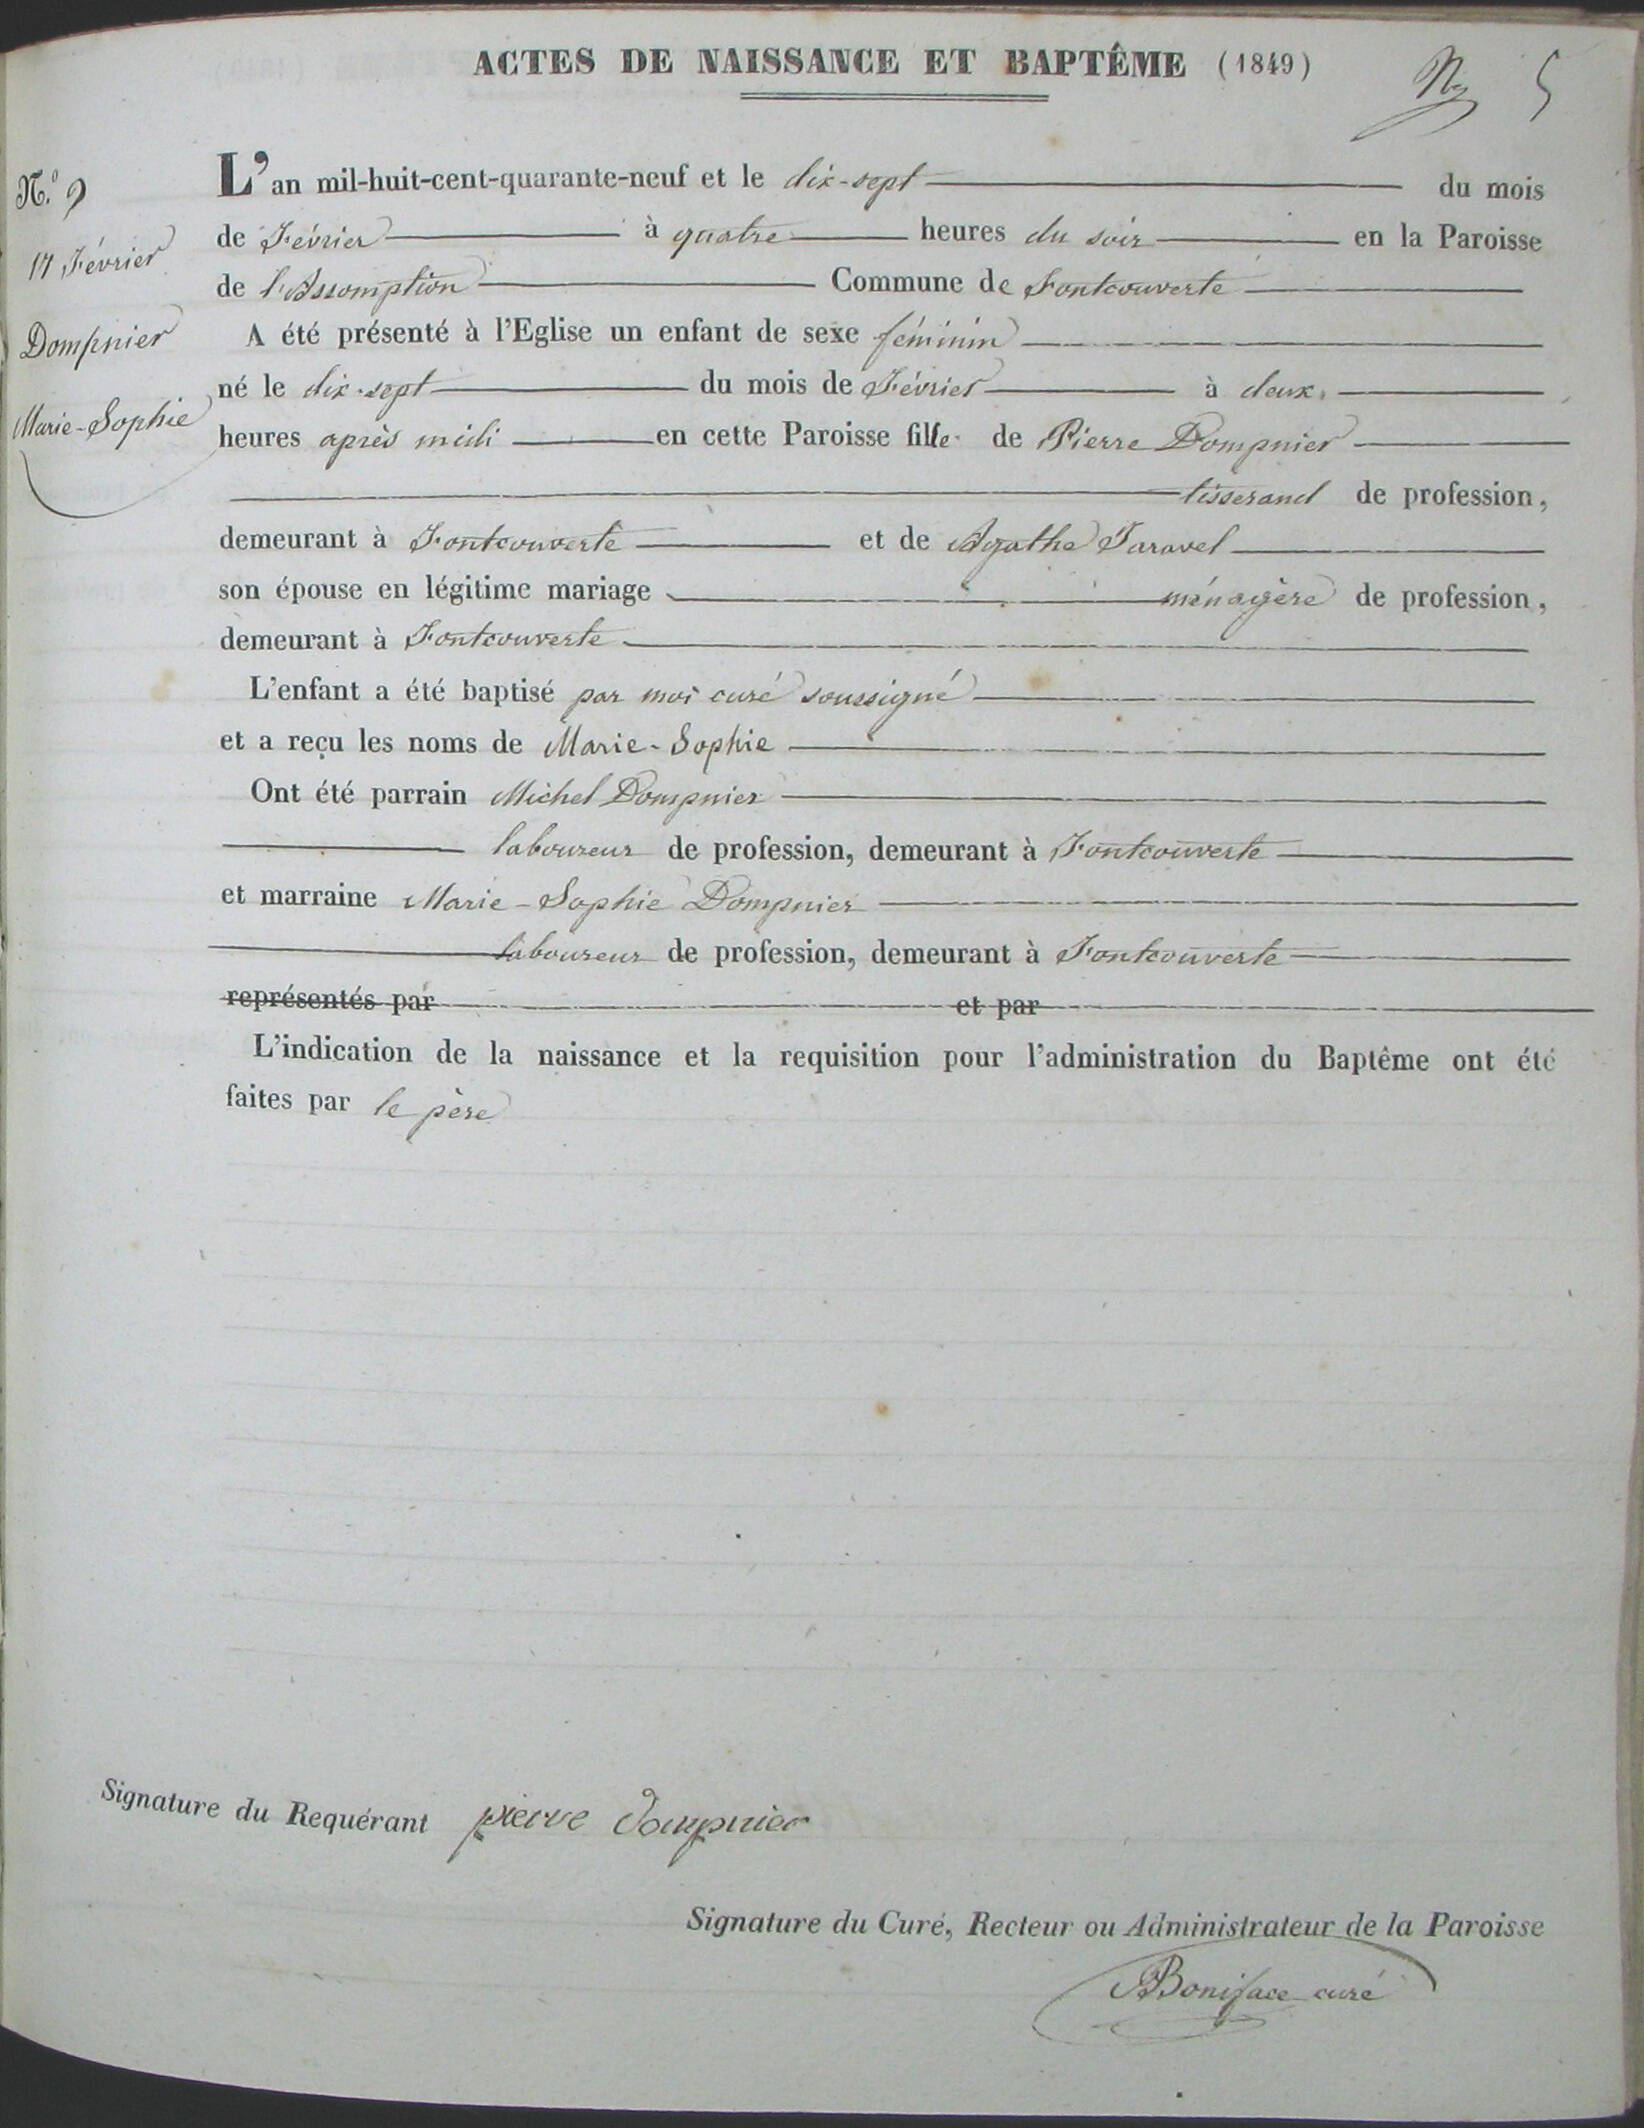 ACTES DE NAISSANCE ET BAPTÊME (1849)
5
N.º 9
17 Février
Dompnier
Marie-Sophie
L'an mil-huit-cent-quarante-neuf et le dix-sept du mois
de Février à quatre heures du soir en la Paroisse
de l'Assomption Commune de Fontcouverte
A été présenté à l'Eglise un enfant de sexe féminin
né le dix-sept du mois de Février à deux
heures après midi en cette Paroisse fille de Pierre Dompnier
tisserand de profession,
demeurant à Fontcouverte et de Agathe Taravel
son épouse en légitime mariage ménagère de profession,
demeurant à Fontcouverte
L'enfant a été baptisé par moi curé soussigné
et a reçu les noms de Marie-Sophie
Ont été parrain Michel Dompnier
laboureur de profession, demeurant à Fontcouverte
et marraine Marie-Sophie Dompnier
laboureur de profession, demeurant à Fontcouverte
représentés par et par
L'indication de la naissance et la requisition pour l'administration du Baptême ont été
faites par le père
Signature du Requérant pierre dompnier
Signature du Curé, Recteur ou Administrateur de la Paroisse
Boniface curé